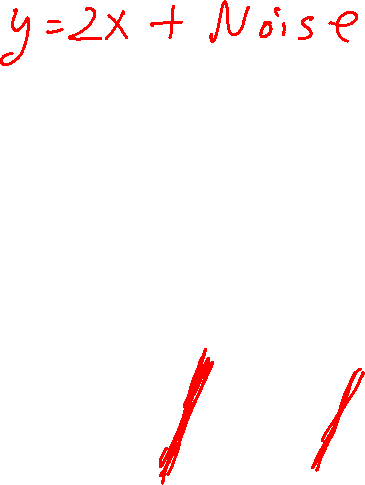 y=2x + Noise